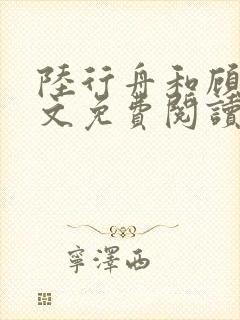 陸行舟和顧
文免費閱讀
寧澤西